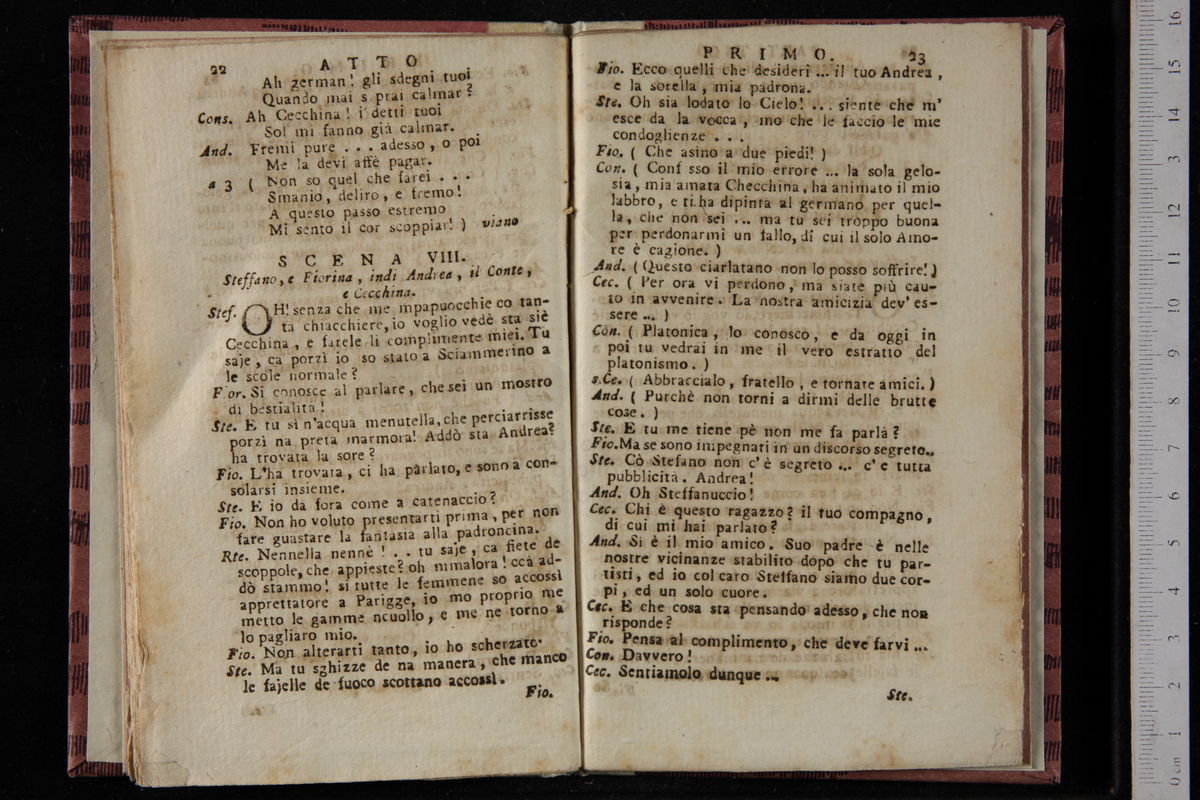 22 ATTO
Ah german! gli sdegni tuoi
Quando mai s prai calmar?
Cons. Ah Cecchina! i detti tuoi
Sol mi fanno già calmar.
And. Fremi pure . . . adesso, o poi
Me la devi affè pagar.
a 3 ( Non so quel che farei . . .
Smanio, deliro, e fremo!
A questo passo estremo
Mi sento il cor scoppiar! ) viano
SCENA VIII.
Steffano, e Fiorina, indi Andrea, il Conte,
e Cecchina.
Stef. OH! senza che me mpapuocchie co tan-
ta chiacchiere, io voglio vedè sta siè
Cecchina, e farele li complimente miei. Tu
saje, ca porzì io so stato a Sciammerino a
le scole normale?
Fior. Si conosce al parlare, che sei un mostro
di bestialità!
Ste. E tu si n'acqua menutella, che perciarrisse
porzì na preta marmora! Addò sta Andrea?
ha trovata la sore?
Fio. L'ha trovata, ci ha parlato, e sono a con-
solarsi insieme.
Ste. E io da fora come a catenaccio?
Fio. Non ho voluto presentarti prima, per non
fare guastare la fantasia alla padroncina.
Rte. Nennella nennè! . . tu saje, ca fiete de
scoppole, che appieste? oh mmalora! ccà ad-
dò stammo! si tutte le femmene so accossì
apprettatore a Parigge, io mo proprio me
metto le gamme ncuollo, e me ne torno a
lo pagliaro mio.
Fio. Non alterarti tanto, io ho scherzato.
Ste. Ma tu sghizze de na manera, che manco
le fajelle de fuoco scottano accossì.
Fio.
PRIMO. 23
Fio. Ecco quelli che desideri ... il tuo Andrea,
e la sorella, mia padrona.
Ste. Oh sia lodato lo Cielo! ... siente che m'
esce da la vocca, mo che le faccio le mie
condoglienze . . .
Fio. ( Che asino a due piedi! )
Con. ( Conf sso il mio errore ... la sola gelo-
sia, mia amata Checchina, ha animato il mio
labbro, e ti ha dipinta al germano per quel-
la, che non sei ... ma tu sei troppo buona
per perdonarmi un fallo, di cui il solo Amo-
re è cagione. )
And. ( Questo ciarlatano non lo posso soffrire! )
Cec. ( Per ora vi perdono, ma siate più cau-
to in avvenire. La nostra amicizia dev' es-
sere ... )
Con. ( Platonica, lo conosco, e da oggi in
poi tu vedrai in me il vero estratto del
platonismo. )
s.Ce. ( Abbraccialo, fratello, e tornate amici. )
And. ( Purchè non torni a dirmi delle brutte
cose. )
Ste. E tu me tiene pè non me fa parlà?
Fio. Ma se sono impegnati in un discorso segreto..
Ste. Cò Stefano non c'è segreto ... c'e tutta
pubblicità. Andrea!
And. Oh Steffanuccio!
Cec. Chi è questo ragazzo? il tuo compagno,
di cui mi hai parlato?
And. Sì è il mio amico. Suo padre è nelle
nostre vicinanze stabilito dopo che tu par-
tisti, ed io col caro Steffano siamo due cor-
pi, ed un solo cuore.
Cec. E che cosa sta pensando adesso, che non
risponde?
Fio. Pensa al complimento, che deve farvi ...
Con. Davvero!
Cec. Sentiamolo dunque ...
Ste.
0 cm 1 2 3 4 5 6 7 8 9 10 11 12 13 14 15 16